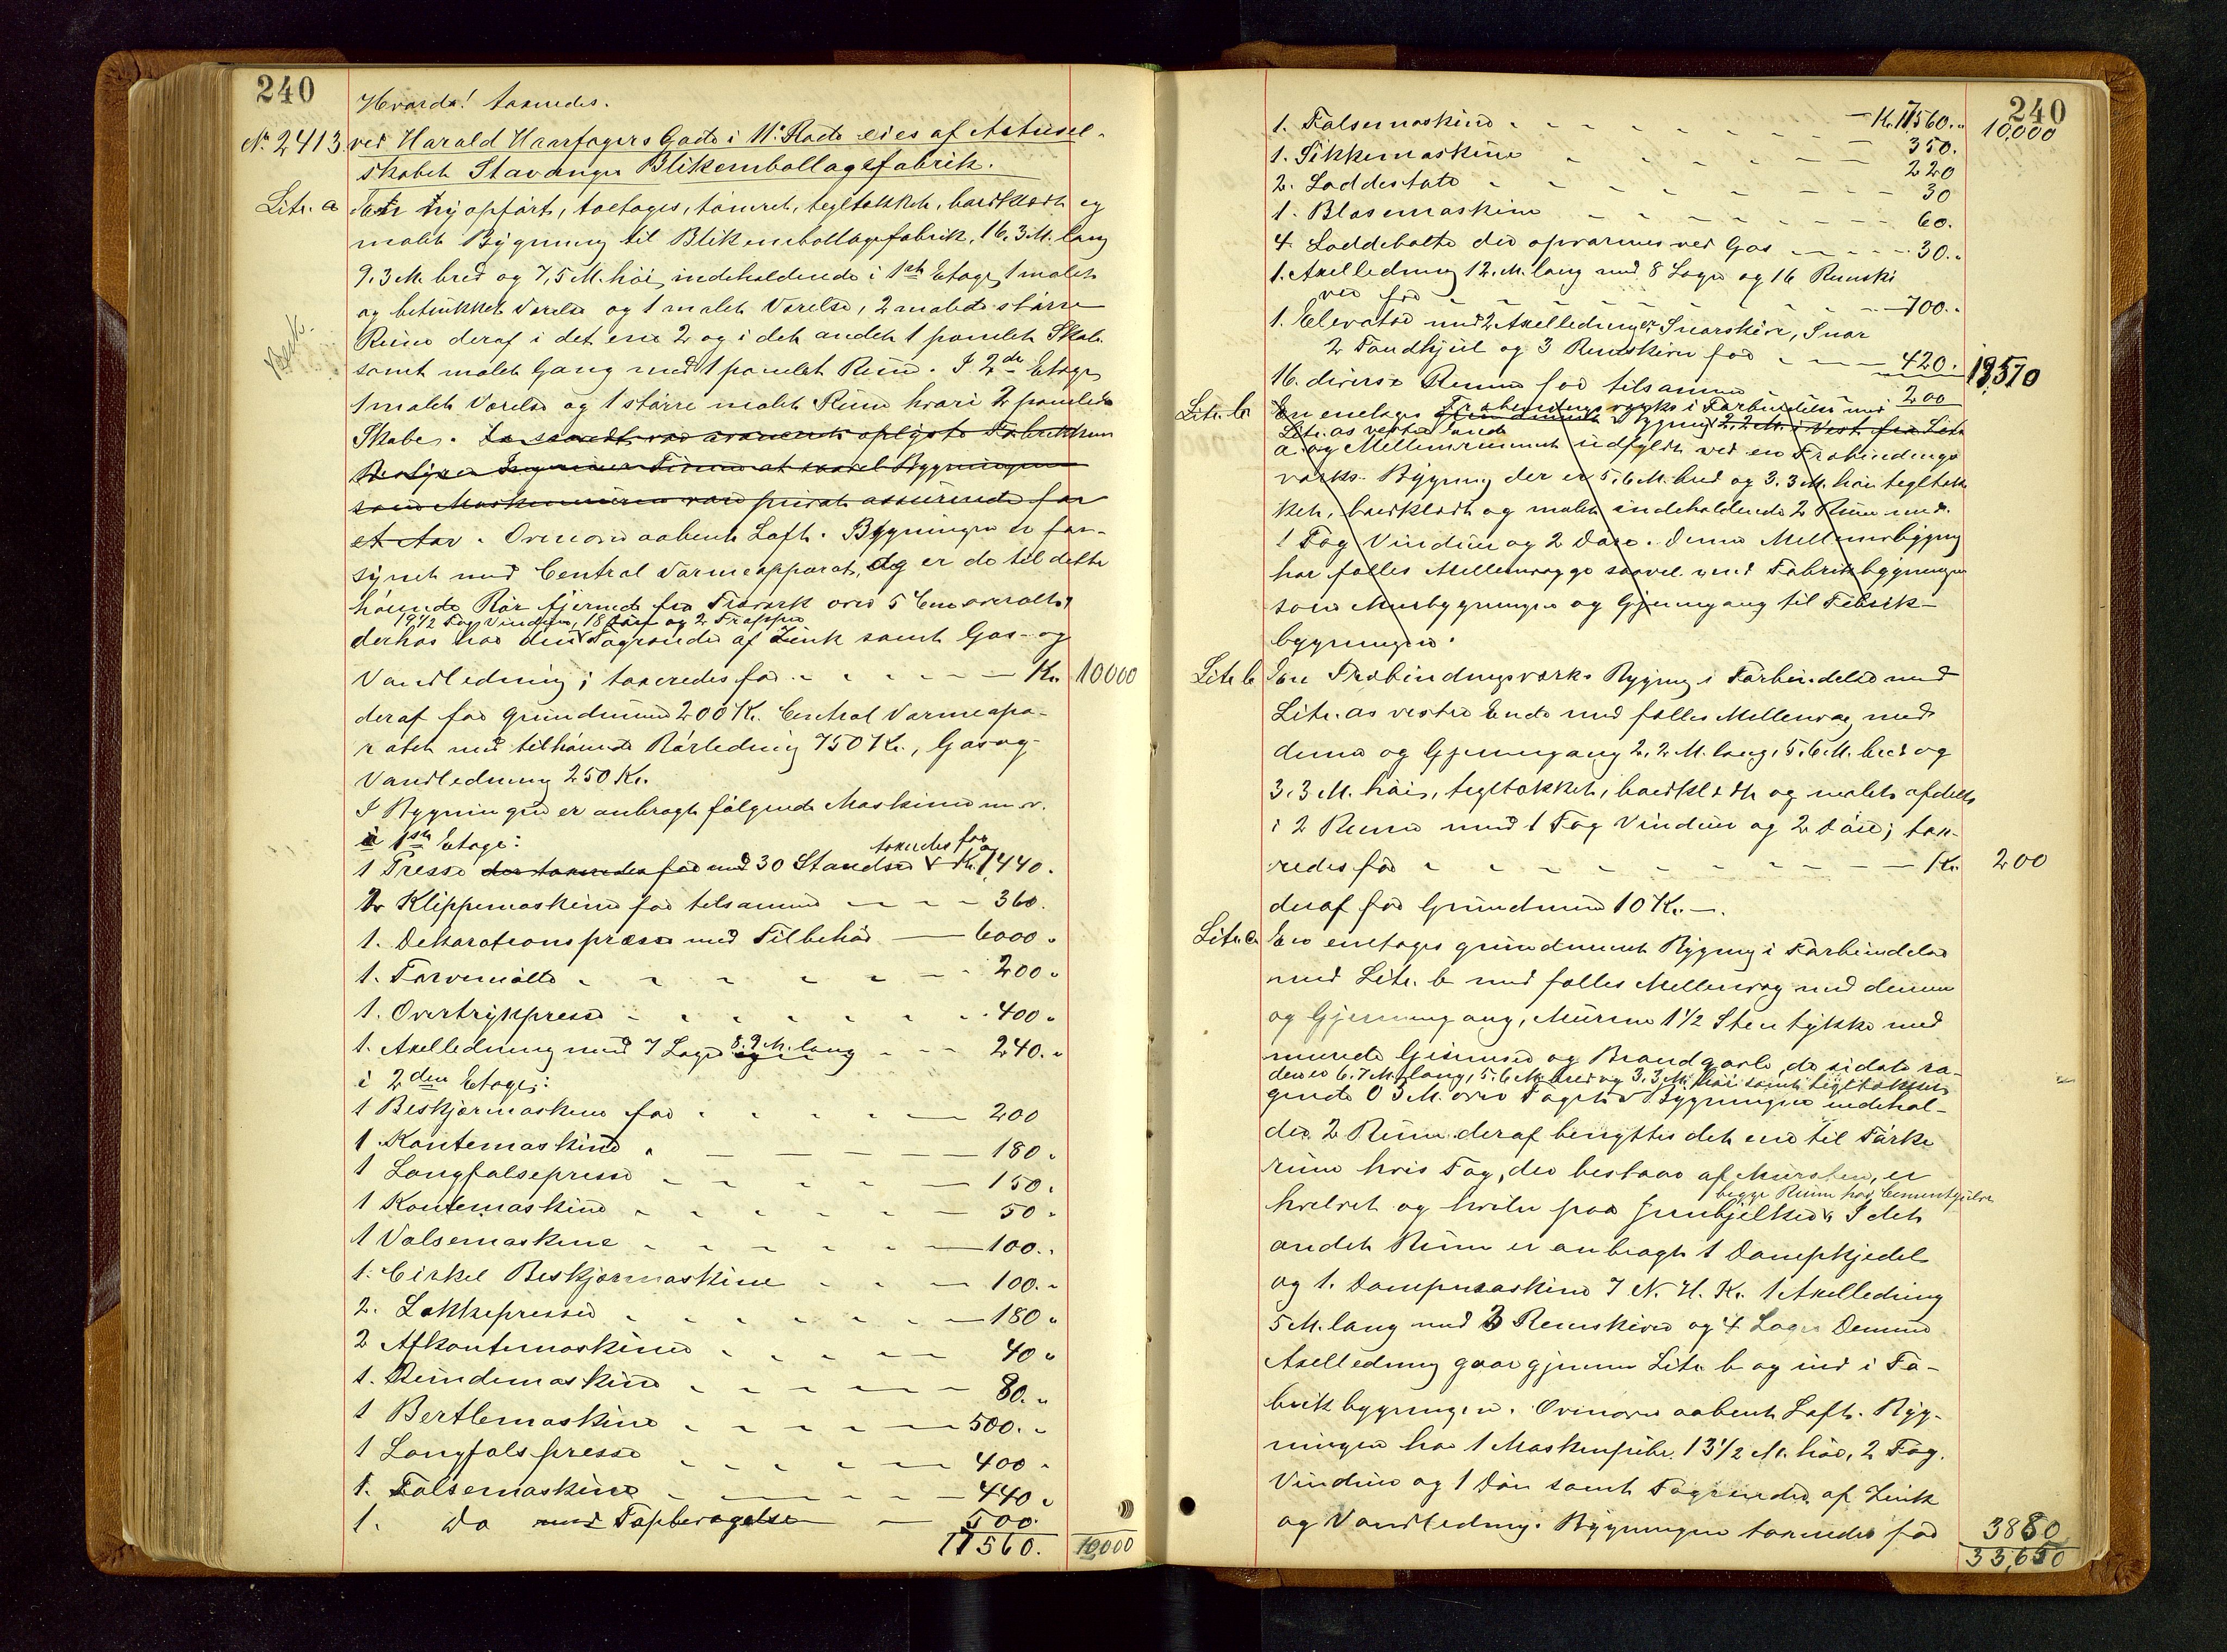 240
Hvorda! taxeredes.
No 2413. ved Harald Haarfagers Gade i 11te Rode eies af Aktiesel-
skabet Stavanger Blikemballagefabrik.
Litr. a En ny opført, toetages, tømret, tegltækket, bordklædt og
malet Bygning til Blikemballagefabrik, 16,3 M. lang
9,3 M. bred og 7,5 M. høi, indeholdende i 1ste Etage 1 malet
og betrukket Værelse og 1 malet Værelse, 2 malede større
Rum deraf i det ene 2 og i det andet 1 panelet Skab
samt malet Gang med 1 panelet Rum. I 2den Etage
Besk.
1 malet Værelse og 1 større malet Rum hvori 2 panelede
Skabe.
et Aar. Ovenover aabent Loft. Bygningen er for-
synet med Central Varmeapparat, og er de til dette
hørende Rør fjernede fra Træværk over 5 Cm overalt,
19 1/2 Fag Vinduer, 18 Døre og 2 Trapper
derhos har den Tagrender af Zink samt Gas- og
Vandledning; taxeredes for - - - Kr. 10000
deraf for Grundmur 200 Kr. Central Varmeapa-
ratet med tilhørende Rørledning 750 Kr., Gas og
Vandledning 250 Kr.
I Bygningen er anbragt følgende Maskiner m.v.
i 1ste Etage:
taxeredes for
1 Presse der taxeredes for med 30 Standser Kr. 1,440.
2 Klippemaskiner for tilsammen - - - 360.
1. Dekorationspresse med Tilbehør - 6000.
1. Farvemølle - - - 200.
1. Overtrykpresse - - - 400.
1. Axelledning med 7 Lager 8,9 M. lang - - - 240.
i 2den Etage:
1 Beskjærmaskine for - - - 200
1. Kantemaskine - - - 180.
1 Langfalsepresse - - - 150.
1 Kantemaskine - - - 50.
1 Valsemaskine - - - 100.
1. Cirkel Beskjærmaskine - - - 100.
2. Lokkepresser - - - 180.
2 Afkantemaskiner - - - 40.
1. Rundemaskine - - - 80.
1 Bertlemaskine - - - 500.
1 Langfalspresse - - - 400.
1. Falsemaskine - - - 440.
1. do med Tapbevægelse - 500.
11560. 10,000
240
1. Falsemaskine - - - Kr. 11560. 10,000
1. Sikkemaskine - - - 350.
2. Loddestole - - - 220
1. Blæsemaskine - - - 30
4. Loddebolte der opvarmes ved Gas - - - 60.
30.
1. Axelledning 12. M. lang med 8 Lager og 16 Remski
ver for - - - 700.
1. Elevator med 2 Axelledninger, Snorskive, Snor
2 Tandhjul og 3 Remskiver for - - - 420.
16. diverse Remme for tilsammen - 200 13,570
Litr. b En enetages Træbindingsværks i Forbindelse med
Litr. as vestre Ende Bygning 2,2 M. i Vest fra Litr
a. og Mellemrummet udfyldt ved en Træbindings
værks. Bygning der er 5,6 M. bred og 3,3 M. høi tegltæk
ket, bordklædt og malet indeholdende 2 Rum med
1 Fag Vinduer og 2 Døre. Denne Mellembygning
har fælles Mellemvægge saavel med Fabrikbygningen
som Murbygningen og Gjennemgang til Fabrik-
bygningen.
Litr. b En Træbindingsværks Bygning i Forbindelse med
Litr. as vestre Ende med fælles Mellemvæg med
denne og Gjennemgang 2,2 M. lang, 5,6 M. bred og
3,3 M. høi, tegltækket, bordklædt og malet afdelt
i 2 Rum med 1 Fag Vinduer og 2 Døre; tax-
redes for - - - Kr. 200
deraf for Grundmur 10 Kr. -.
Litr. c En enetages grundmuret Bygning i Forbindelse
med Litr. b med fælles Mellemvæg med denne
og Gjennemgang, Murene 1 1/2 Sten tykke med
murede Gesimser og Brandgavle, de sidste ra-
den er 6,7 M. lang, 5,6 M. bred og 3,3 M. høi samt tegltækket
gende 0 3 M. over Taget. Bygningen indehol-
der 2 Rum deraf benyttes det ene til Tørke
rum hvis Tag, der bestaar af Mursten, er
begge Rum har Cementgulve
hvelvet og hviler paa Jernbjelker. I det
andet Rum er anbragt 1 Dampkjedel
og 1. Dampmaskine 7 N. H. K. 1 Axelledning
5 M. lang med 3 Remskiver og 4 Lager Denne
Axelledning gaar gjennem Litr. b og ind i Fa-
brikbygningen. Ovenover aabent Loft. Byg-
ningen har 1 Maskinpibe 13 1/2 M. høi, 2 Fag.
Vinduer og 1 Dør samt Tagrender af Zink
og Vandledning. Bygningen taxeredes for 3880
33,650